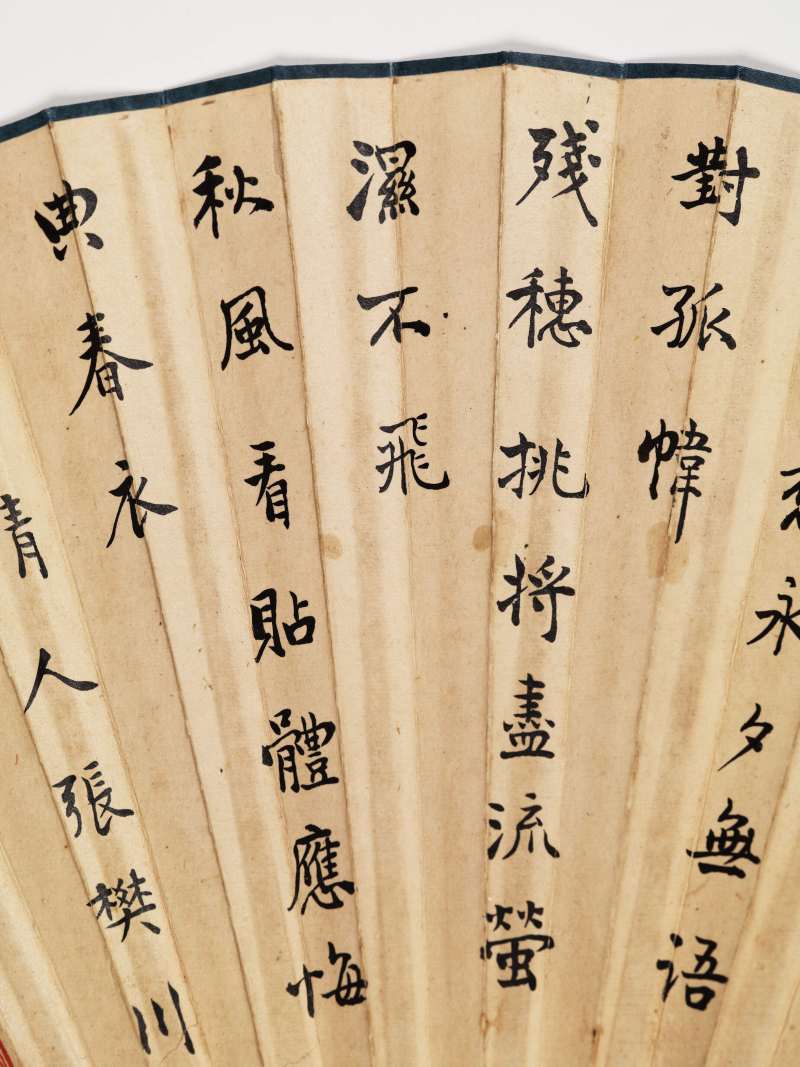 永夕無語
對孤幃
殘穗挑將盡流螢
濕不飛
秋風看貼體應悔
典春衣
清人張樊川